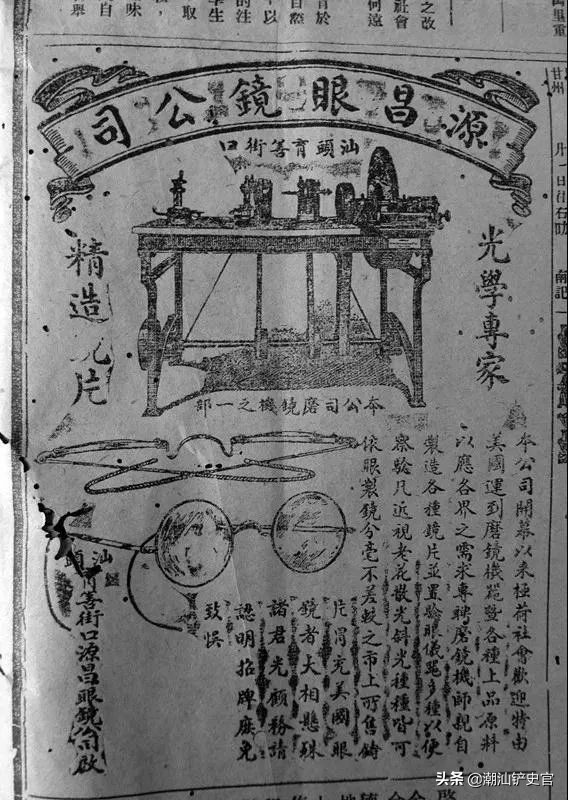 之改
社會
何遠
源昌眼鏡公司
汕頭育善街口
光學專家
精造鏡片
本公司磨鏡機之一部
本公司開幕以來極荷社會歡迎特由
美國運到磨鏡機器暨各種上品原料
以應各界之需求專聘磨鏡機師親自
製造各種鏡片並置驗眼儀器多種以便
察驗凡近視老花散光斜光種種皆可
依眼製鏡分毫不差較之市上所售鑄
片冒充美國眼
鏡者大相懸殊
諸君光顧務請
認明招牌庶免
致悮
汕頭育善街口源昌眼鏡公司啟
头条 @潮汕铲史官